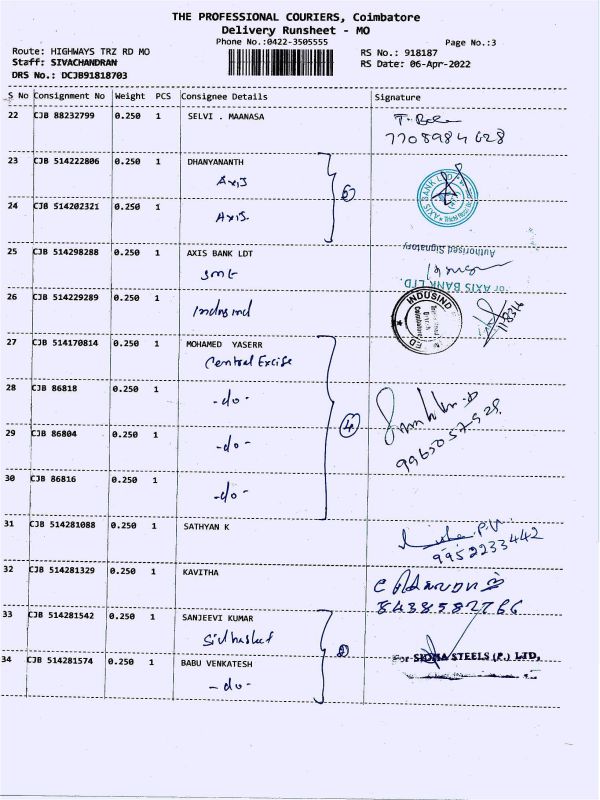 THE PROFESSIONAL COURIERS, Coimbatore
Delivery Runsheet - MO
Phone No.:0422-3505555
Page No.:3
Route: HIGHWAYS TRZ RD MO
RS No.: 918187
Staff: SIVACHANDRAN
RS Date: 06-Apr-2022
DRS No.: DCJB91818703
S No Consignment No Weight PCS Consignee Details Signature
22 CJB 88232799 0.250 1 SELVI . MAANASA
7708984628
23 CJB 514222806 0.250 1 DHANYANANTH
Axis
24 CJB 514202321 0.250 1
Axis.
AXIS BANK LTD
25 CJB 514298288 0.250 1 AXIS BANK LDT
Authorised Signatory
For AXIS BANK LTD.
26 CJB 514229289 0.250 1
Indusind
INDUSIND
27 CJB 514170814 0.250 1 MOHAMED YASERR
Central Excise
28 CJB 86818 0.250 1
-do-
29 CJB 86804 0.250 1
-do-
4
9965057528
30 CJB 86816 0.250 1
-do-
31 CJB 514281088 0.250 1 SATHYAN K
9952233442
32 CJB 514281329 0.250 1 KAVITHA
8438582766
33 CJB 514281542 0.250 1 SANJEEVI KUMAR
34 CJB 514281574 0.250 1 BABU VENKATESH
-do-
For SIGMA STEELS (P.) LTD,